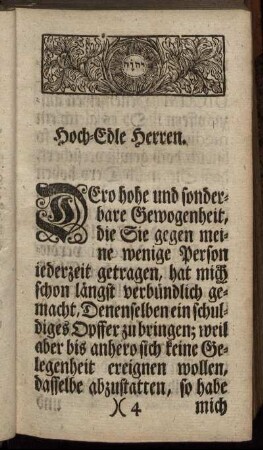 יהוה
Hoch-Edle Herren.
DEro hohe und sonder-
bare Gewogenheit,
die Sie gegen mei-
ne wenige Person
iederzeit getragen, hat mich
schon längst verbündlich ge-
macht, Denenselben ein schul-
diges Opffer zu bringen; weil
aber bis anhero sich keine Ge-
legenheit ereignen wollen,
dasselbe abzustatten, so habe
)( 4 mich